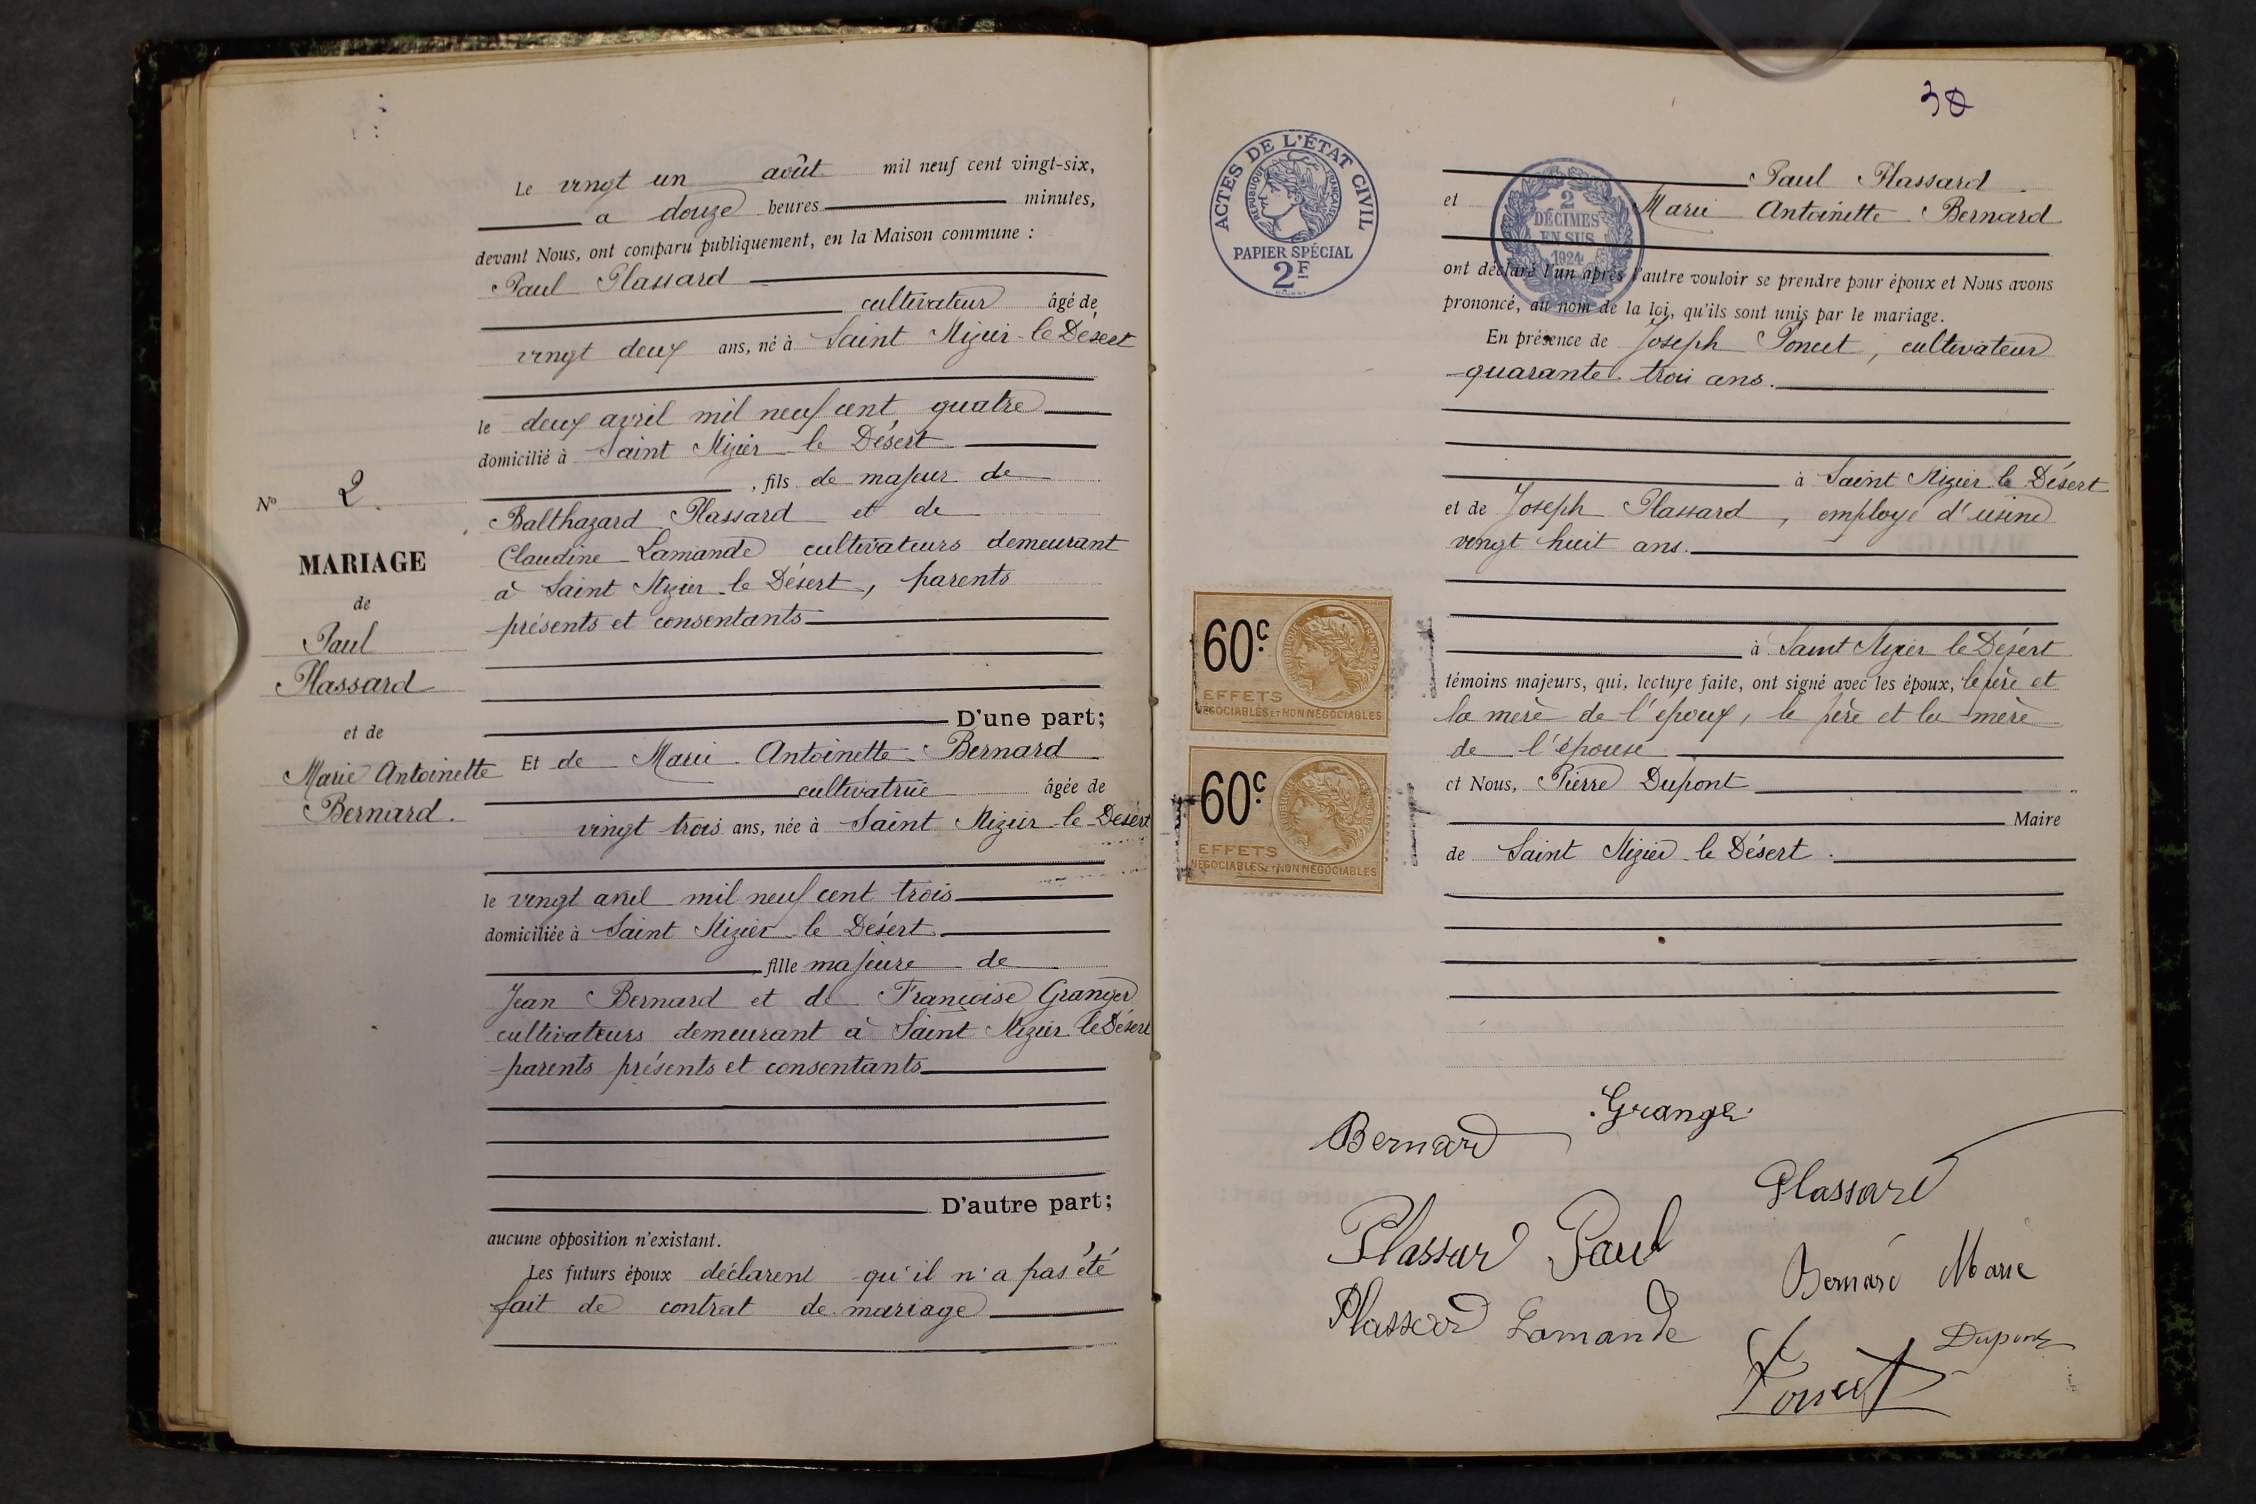 Le vingt un août mil neuf cent vingt-six,
a douze heures minutes,
devant Nous, ont comparu publiquement, en la Maison commune :
Paul Plassard
cultivateur âgé de
vingt deux ans, né à Saint Nizier le Désert
le deux avril mil neuf cent quatre
domicilié à Saint Nizier le Désert
, fils de majeur de
Balthazard Plassard et de
Claudine Lamande cultivateurs demeurant
à Saint Nizier le Désert, parents
présents et consentants
D'une part;
Et de Marie Antoinette Bernard
cultivatrice âgée de
vingt trois ans, née à Saint Nizier le Désert
le vingt avril mil neuf cent trois
domiciliée à Saint Nizier le Désert
, fille majeure de
Jean Bernard et de Françoise Granger
cultivateurs demeurant à Saint Nizier le Désert
parents présents et consentants
D'autre part;
aucune opposition n'existant.
Les futurs époux déclarent qu'il n'a pas été
fait de contrat de mariage
N° 2.
MARIAGE
de
Paul
Plassard
et de
Marie Antoinette
Bernard.
38
ACTES DE L'ÉTAT CIVIL
RÉPUBLIQUE FRANÇAISE
PAPIER SPÉCIAL
2F
2
DÉCIMES
EN SUS
1924
Paul Plassard
et Marie Antoinette Bernard
ont déclaré l'un après l'autre vouloir se prendre pour époux et Nous avons
prononcé, au nom de la loi, qu'ils sont unis par le mariage.
En présence de Joseph Poncet, cultivateur
quarante trois ans.
à Saint Nizier le Désert
et de Joseph Plassard, employé d'usine
vingt huit ans.
à Saint Nizier le Désert
témoins majeurs, qui, lecture faite, ont signé avec les époux, le père et
la mère de l'époux, le père et la mère
de l'épouse
et Nous, Pierre Dupont
Maire
de Saint Nizier le Désert.
60c
EFFETS
NÉGOCIABLES ET NON NÉGOCIABLES
60c
EFFETS
NÉGOCIABLES ET NON NÉGOCIABLES
Bernard Granger
Plassard
Plassard Paul
Bernard Marie
Plassard Lamande
Dupont
Poncet